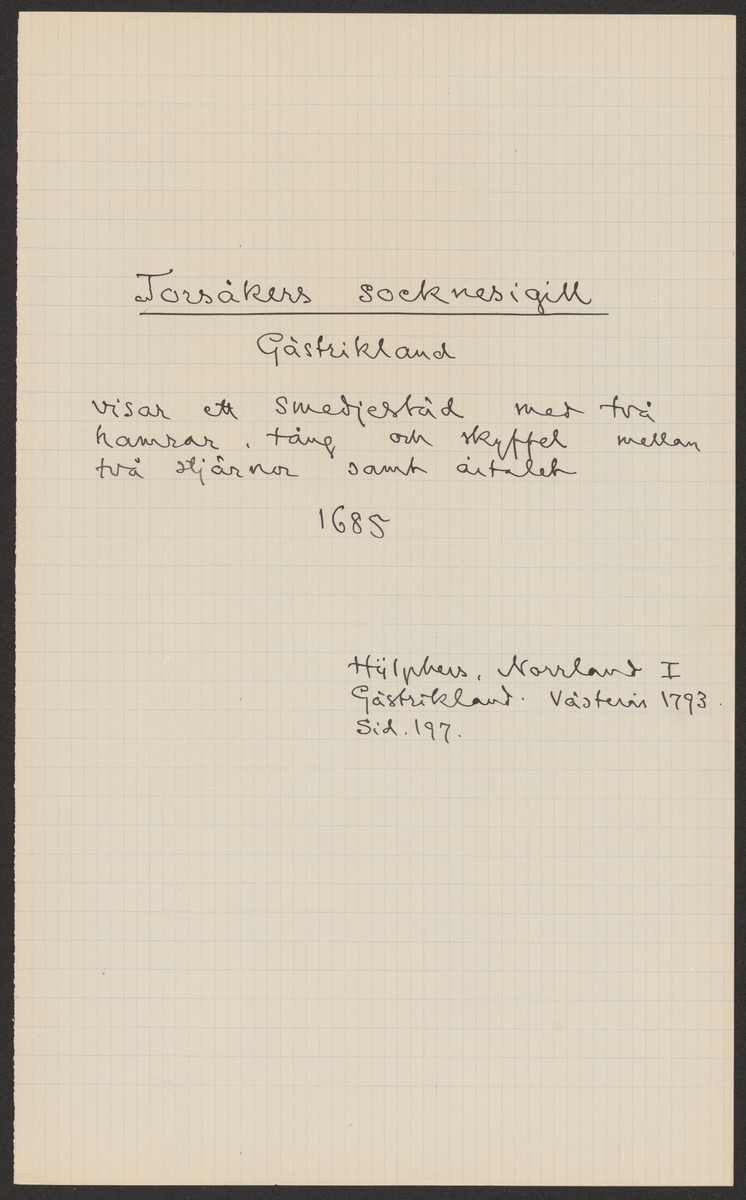 Torsåkers socknesigill
Gästrikland
visar ett smedjestäd med två
hamrar, tång och skyffel mellan
två stjärnor samt årtalet
1685
Hülphers, Norrland I
Gästrikland. Västerås 1793.
Sid. 197.